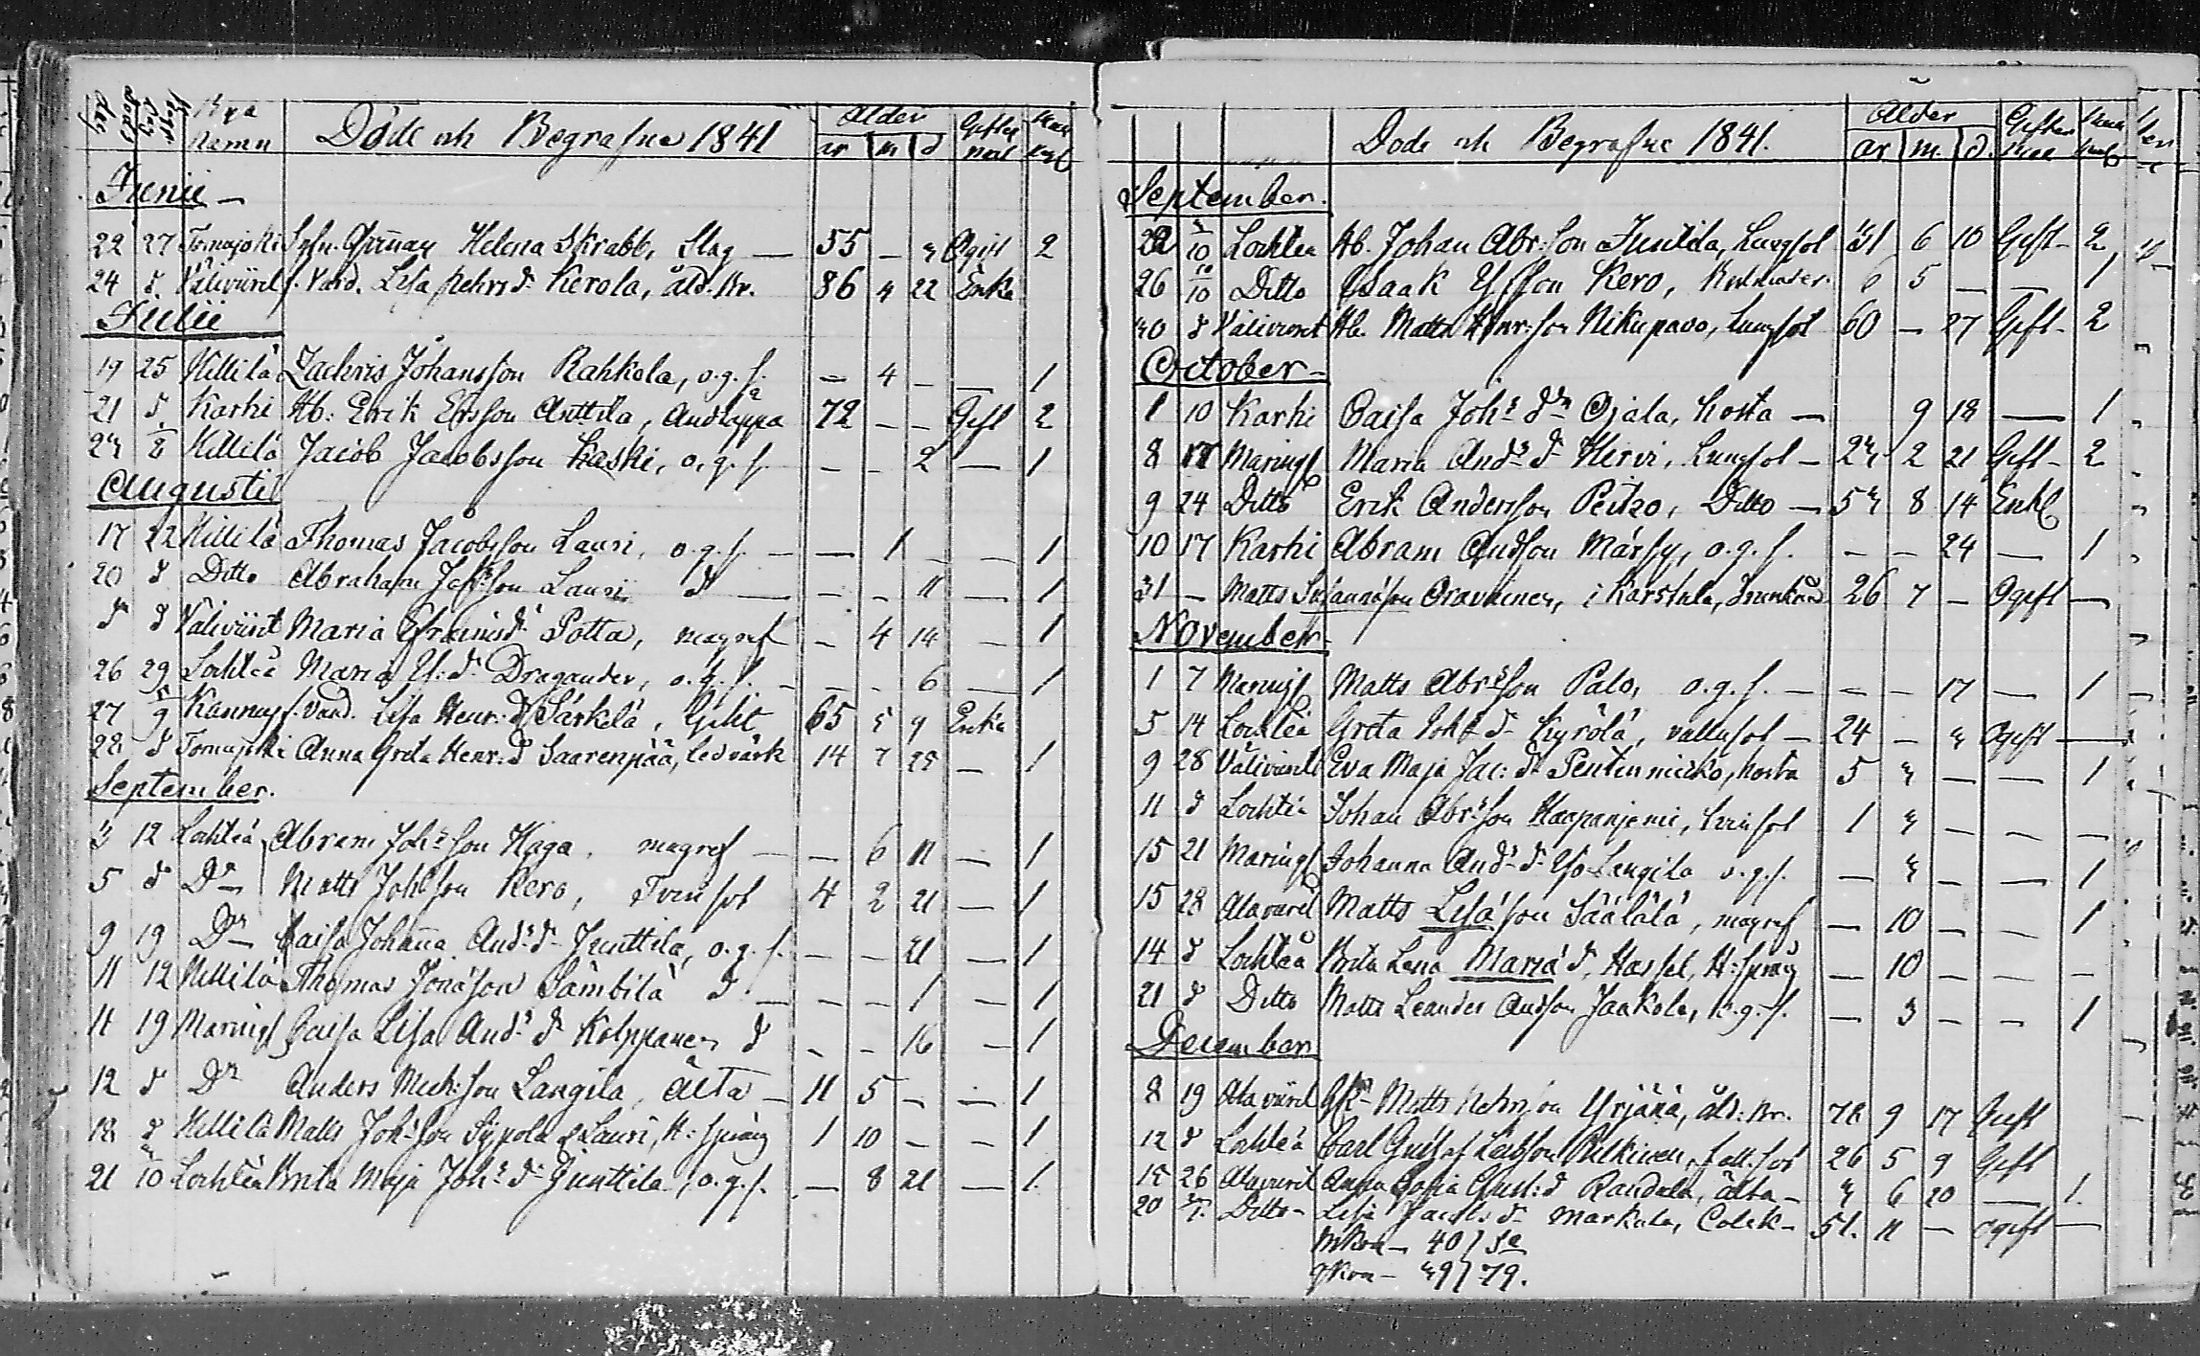 Bya Nemn Döde och Begrafne 1841 Ålder Giftermål
år m d
Junii
22 27 Tomujoki Helena Skrabb, Slag — 55 — 3 Ogift 2
24 d. Väliviirt f. Vard. Lisa Pehrs d. Kerola, åld. br. 86 4 22 Enka
Julii
19 25 Hillilä Zachris Johansson Rahkola, o.g.s. — 4 — — 1
21 d Karhi Hb: Erik Ersson Anttila, Andtäppa 72 — — Gift 2
Hillilä Jacob Jacobsson Kaski, o.g.s. — — 2 — 1
Augusti
17 22 Hillilä Thomas Jacobsson Lauri, o.g.s. — — 1 — — 1
20 d Ditto Abraham Lauri d — — — 11 — 1
d d Väliviirt Maria Efraimsd. Potta, magref — 4 14 — 1
26 29 Lochteå Maria Dragander, o.g.s. — — — 6 — 1
27 Kannus f. Vard. Lisa Henr: d. Särkelä, Gikt 65 5 9 Enka
28 d Tomujoki Anna Greta Henr. d. Saarenpää, ledvärk 14 7 28 — 1
September.
3 12 Lochteå Abram Joh:s son Haga, magref — — 6 11 — 1
5 d Do — Matts Joh:s son Kero, Tvinsot 4 2 21 — 1
9 19 Do — Caisa Johanna And:s d. Junttila, o.g.s. — — — 21 — 1
11 12 Hillilä Thomas Jonä son Sämbilä d — — — 1 — 1
11 19 Maringf Caisa Lisa And:s d. Kolppanen d — — 16 — 1
12 d Do Anders Mich: son Langila, Älta — 11 5 — — 1
18 d Hillilä Matts Joh:s son Sypola & Lauri, H: språng 1 10 — — 1
21 3/10 Lochteå Brita Maja Joh:s d. Junttila, o.g.s. — 8 21 — 1
Döde och Begrafne 1841. Ålder Giftermål
år m. d.
September.
3/10 Lochteå Hb. Johan Abr:son Junttila, Lungsot 31 6 10 Gift — 2
26 10/10 Ditto Isaak Kero, 6 5 — — 1
30 d Väliviirt Hb. Matts Henr:son Nikupavo, Lungsot 60 — 27 Gift — 2
October —
1 10 Karhi Caisa Joh:s d. Ojala, hosta — 9 18 — 1
8 17 Maringf Maria And:s d. Hirvi, Lungsot — 23 2 21 Gift — 2
9 24 Ditto Erik Andersson Peitzo, Ditto — 53 8 14 Enkl
10 17 Karhi Abram Andsson Märsy, o.g.s. — — 24 — 1
31 — Matts Oravainen, i Karstula, Drunknad 26 7 — Ogift —
November —
1 7 Maringf Matts Abr:s son Palo, o.g.s. — — — 17 — 1
5 14 Lochteå Greta Joh:s d. Kyrölä, vattusot — 24 — 3 Ogift —
9 28 Väliviirt Eva Maja Jac: d. Penttinnickö, hosta 5 3 — — 1
11 d Lochteå Johan Abr:s son Haapaniemi, tvinsot 1 3 — — —
15 21 Maringf Johanna And:s d. Yso-Langila o.g.s. — 3 — — 1
15 28 Alaviirt Matts Lisä son Säälälä, magref — 10 — — 1
14 d Lochteå Brita Lena Mariä d. Hassel, H: språng — 10 — — —
21 d Ditto Matts Leander Andsson Jaakola, o.g.s. — 3 — — 1
December
8 19 Alaviirt Matts Pehrsson Yrjänä, åld: br. 78 9 17 Gift
12 d Lochteå Carl Gustaf Pulkinen, 26 5 9 Gift
15 26 Alaviirt Anna Sofia Gust: d Randula, älta — 3 6 20 — 1
20 Ditto — Lisa Jacobs d. Markula, Colik — 51. 11 — ogift —
Mkön — 40 } S:a
Qkön — 39 } 79.